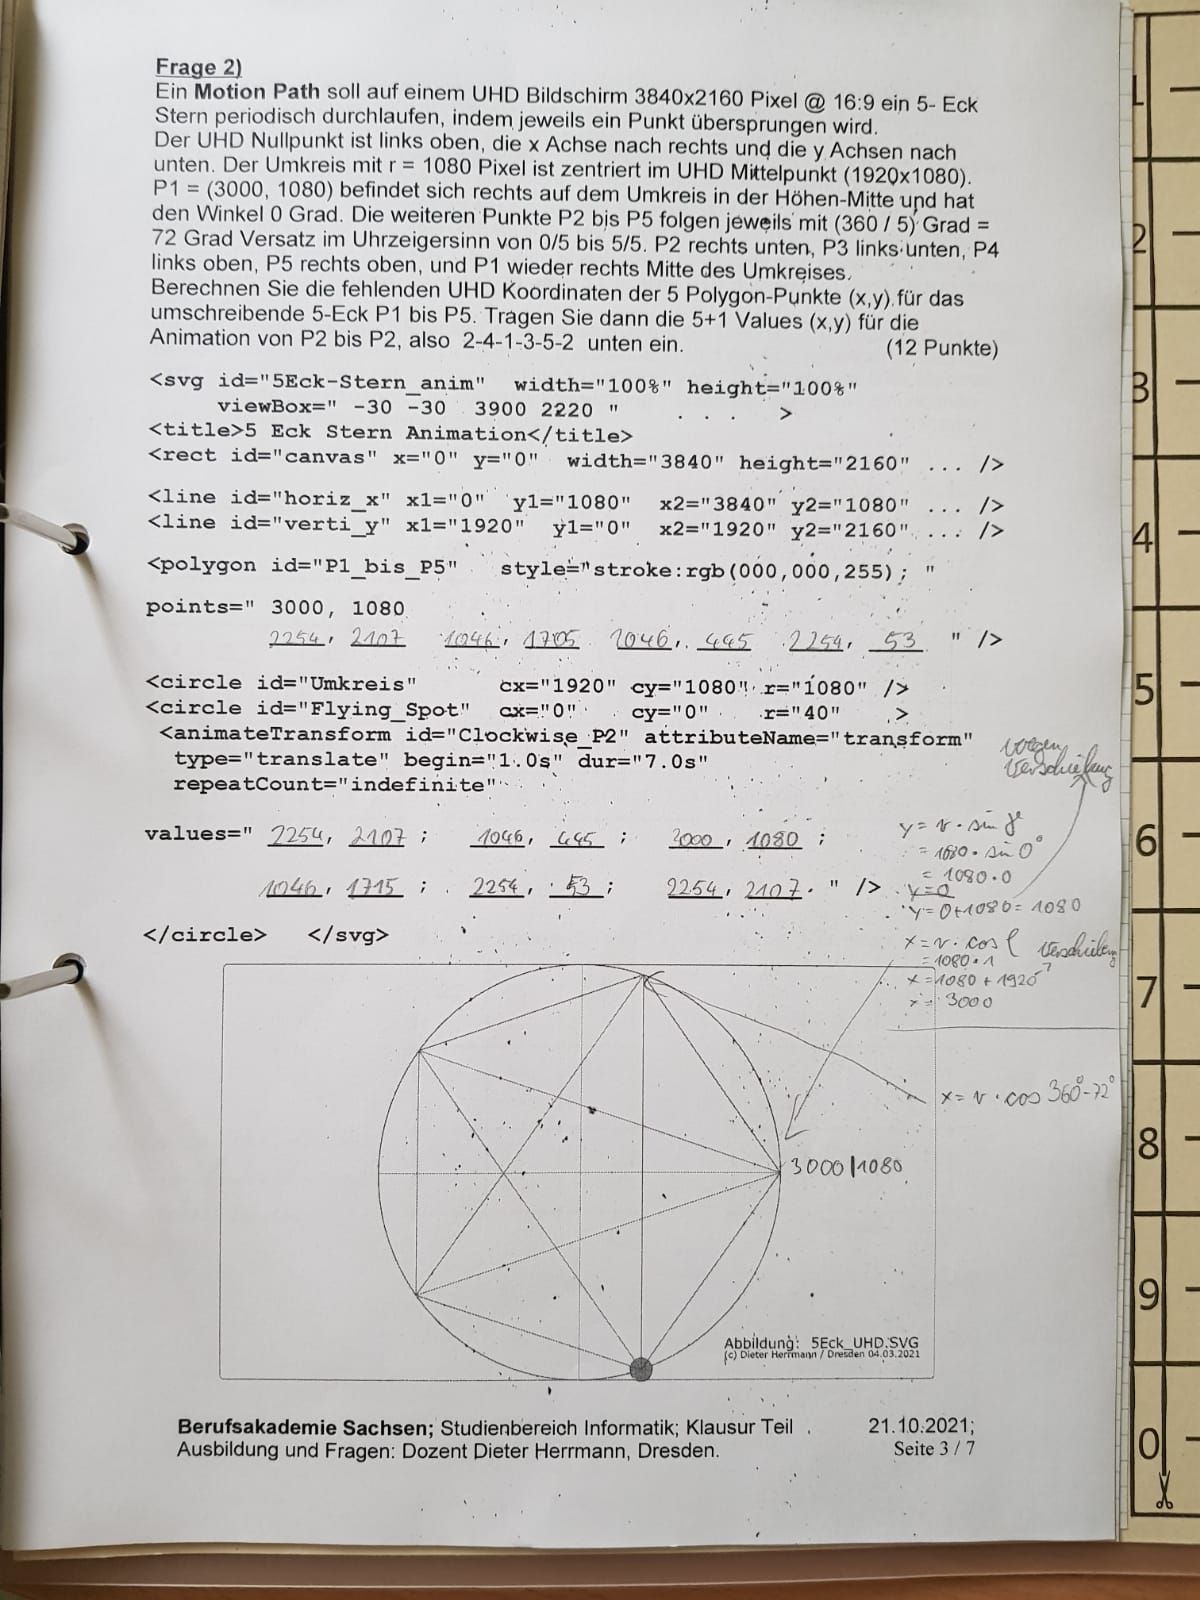 Frage 2)
Ein Motion Path soll auf einem UHD Bildschirm 3840x2160 Pixel @ 16:9 ein 5- Eck
Stern periodisch durchlaufen, indem jeweils ein Punkt übersprungen wird.
Der UHD Nullpunkt ist links oben, die x Achse nach rechts und die y Achsen nach
unten. Der Umkreis mit r = 1080 Pixel ist zentriert im UHD Mittelpunkt (1920x1080).
P1 = (3000, 1080) befindet sich rechts auf dem Umkreis in der Höhen-Mitte und hat
den Winkel 0 Grad. Die weiteren Punkte P2 bis P5 folgen jeweils mit (360 / 5) Grad =
72 Grad Versatz im Uhrzeigersinn von 0/5 bis 5/5. P2 rechts unten, P3 links unten, P4
links oben, P5 rechts oben, und P1 wieder rechts Mitte des Umkreises.
Berechnen Sie die fehlenden UHD Koordinaten der 5 Polygon-Punkte (x,y) für das
umschreibende 5-Eck P1 bis P5. Tragen Sie dann die 5+1 Values (x,y) für die
Animation von P2 bis P2, also 2-4-1-3-5-2 unten ein. (12 Punkte)
<svg id="5Eck-Stern_anim" width="100%" height="100%"
viewBox=" -30 -30 3900 2220 " . . . >
<title>5 Eck Stern Animation</title>
<rect id="canvas" x="0" y="0" width="3840" height="2160" ... />
<line id="horiz_x" x1="0" y1="1080" x2="3840" y2="1080" ... />
<line id="verti_y" x1="1920" y1="0" x2="1920" y2="2160" ... />
<polygon id="P1_bis_P5" style="stroke:rgb(000,000,255); "
points=" 3000, 1080
2254, 2107 1046, 1705 1046, 445 2254, 53 " />
<circle id="Umkreis" cx="1920" cy="1080" r="1080" />
<circle id="Flying_Spot" cx="0" cy="0" r="40" >
<animateTransform id="Clockwise_P2" attributeName="transform"
type="translate" begin="1.0s" dur="7.0s"
repeatCount="indefinite"
wegen
Verschiebung
values=" 2254, 2107 ; 1046, 445 ; 3000, 1080 ;
1046, 1715 ; 2254, 53 ; 2254, 2107 " />
</circle> </svg>
y = r · sin
= 1080 · sin 0°
= 1080 · 0
y = 0
y = 0+1080 = 1080
x = r · cos Verschiebung
= 1080 · 1
x = 1080 + 1920
x = 3000
x = r · cos 360°-72°
3000|1080
Abbildung: 5Eck_UHD.SVG
(c) Dieter Herrmann / Dresden 04.03.2021
Berufsakademie Sachsen; Studienbereich Informatik; Klausur Teil . 21.10.2021;
Ausbildung und Fragen: Dozent Dieter Herrmann, Dresden. Seite 3 / 7
1
2
3
4
5
6
7
8
9
0